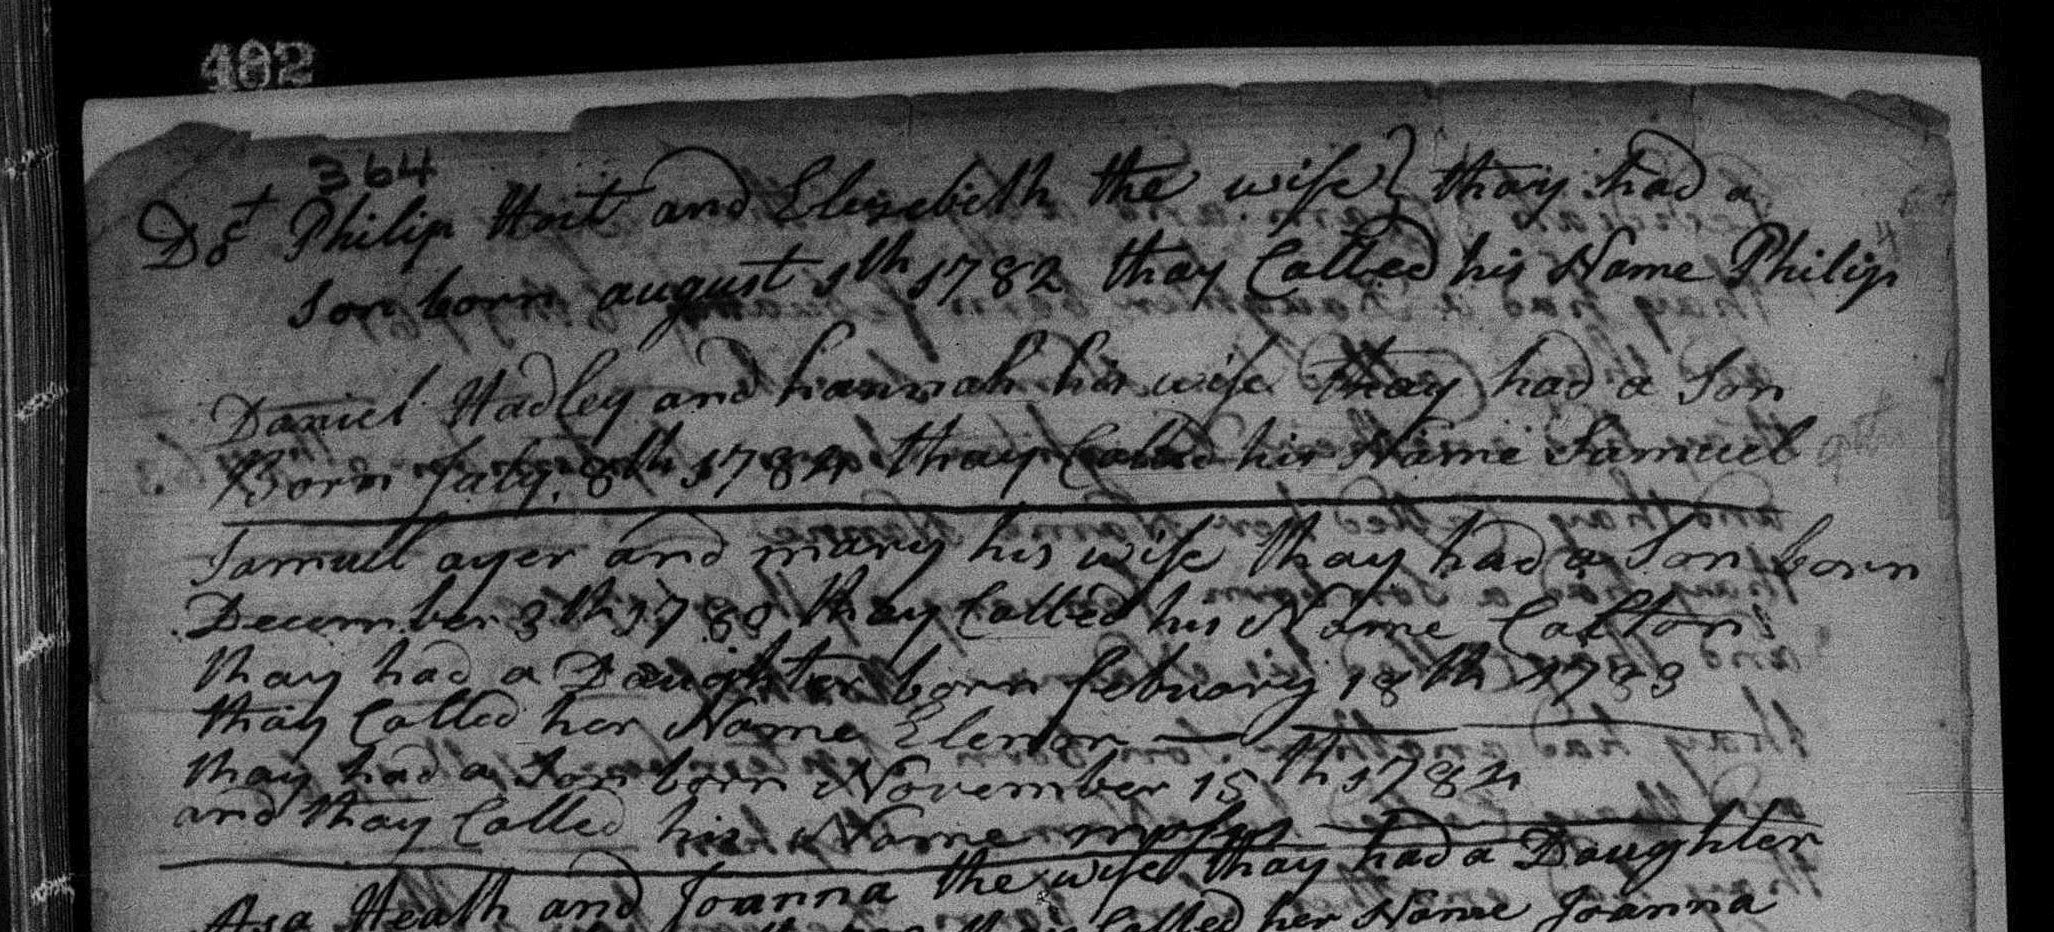 402
364
Dor Philip Hoit and Elizebeth the wife } thay had a
Son born august 1th 1782 thay Called his Name Philip
Daniel Hadley and hannah his wife thay had a Son
Born July 8th 1784 thay Called his Name Samuel
Samuel ayer and mary his wife thay had a Son born
December 8th 1780 thay Called his Name Caston
thay had a Daughter born febuary 18th 1783
thay Called her Name Elenor
thay had a Son born November 15th 1784
and thay Called his Name
Asa Heath and Joanna the wife thay had a Daughter
Called her Name Joanna